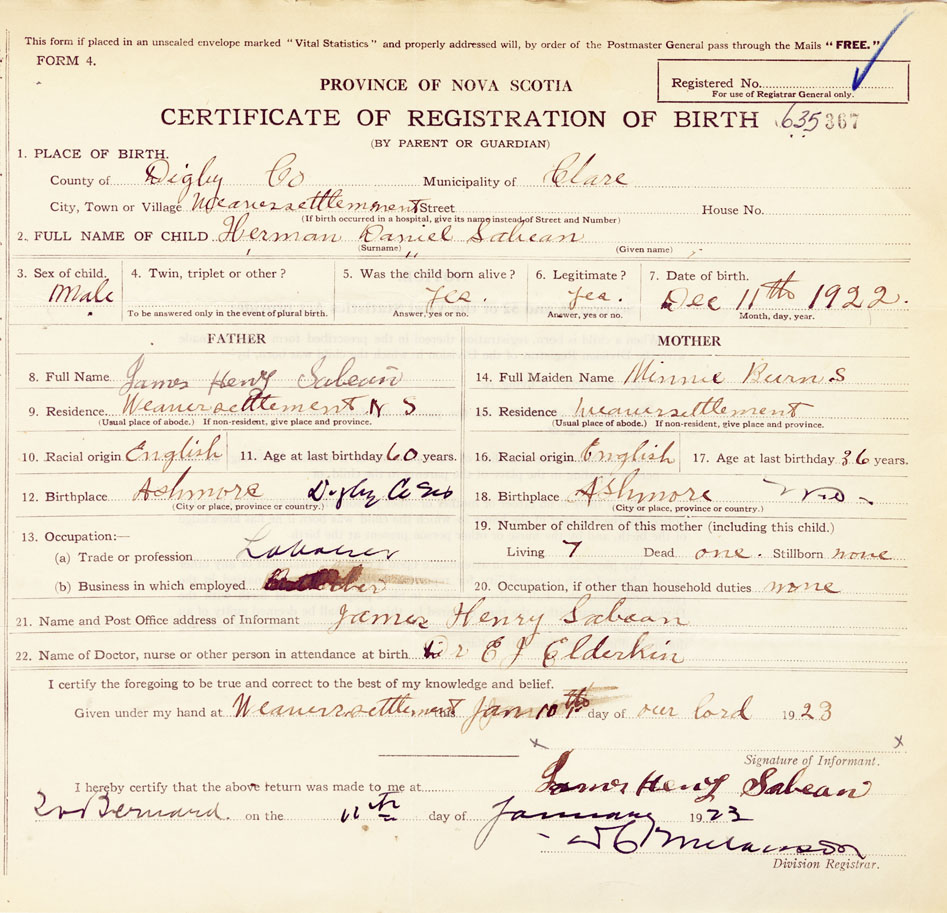 This form if placed in an unsealed envelope marked "Vital Statistics" and properly addressed will, by order of the Postmaster General pass through the Mails "FREE."
FORM 4.
Registered No.
For use of Registrar General only.
PROVINCE OF NOVA SCOTIA
CERTIFICATE OF REGISTRATION OF BIRTH 635367
(BY PARENT OR GUARDIAN)
1. PLACE OF BIRTH.
County of Digby Co Municipality of Clare
City, Town or Village Weaversettlement Street House No.
(If birth occurred in a hospital, give its name instead of Street and Number)
2. FULL NAME OF CHILD Herman Daniel Sabean
(Surname) (Given name)
3. Sex of child. 4. Twin, triplet or other? 5. Was the child born alive? 6. Legitimate? 7. Date of birth.
Male yes. yes. Dec 11th 1922.
To be answered only in the event of plural birth. Answer, yes or no. Answer, yes or no. Month, day, year.
FATHER MOTHER
8. Full Name James Henry Sabean 14. Full Maiden Name Minnie Burns
9. Residence Weaversettlement N S 15. Residence Weaversettlement
(Usual place of abode.) If non-resident, give place and province. (Usual place of abode.) If non-resident, give place and province.
10. Racial origin English 11. Age at last birthday 60 years. 16. Racial origin English 17. Age at last birthday 36 years.
12. Birthplace Ashmore Digby Co 18. Birthplace Ashmore
(City or place, province or country.) (City or place, province or country.)
13. Occupation:— 19. Number of children of this mother (including this child.)
(a) Trade or profession Labourer Living 7 Dead one. Stillborn none
(b) Business in which employed 20. Occupation, if other than household duties none
21. Name and Post Office address of Informant James Henry Sabean
22. Name of Doctor, nurse or other person in attendance at birth Dr E J Elderkin
I certify the foregoing to be true and correct to the best of my knowledge and belief.
Given under my hand at Weaversettlement this Jan 10th day of our lord 1923
x x
Signature of Informant.
I hereby certify that the above return was made to me at James Henry Sabean
Bernard. on the 11th day of January 1923
Division Registrar.